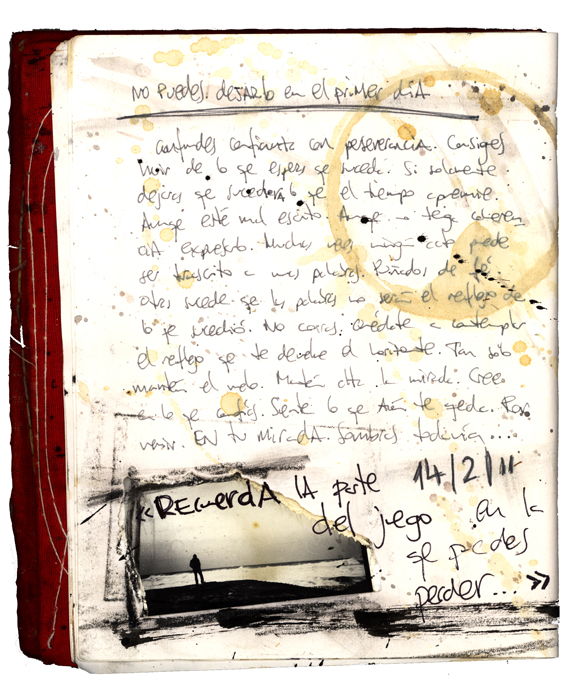 NO PUEDES. DEJARLO en el primer dIA
confundes confianza con perseverancIA. Consigues
huir de lo qe esperas qe suceda. Si solamente
dejaras qe sucediera lo qe el tiempo
Aunqe este mal escrito. Aunqe no tenga
expresarlo. Muchas veces ningun acto puede
ser transcrito a unas palabras. Puñados de fé.
otras sucede qe las palabras no serán el reflejo de
lo qe sucedió. No corras. Quédate a contemplar
el reflejo qe te devuelve el horizonte. Tan solo
mantén el vuelo. Mantén la mirada. Cree
en lo qe confias. Siente lo qe Aún te qeda. Por
venir. EN tu mirada. Sombras todavía ...
14/2/11
«REcuerdA lA parte
del juego en la
qe puedes
perder... »